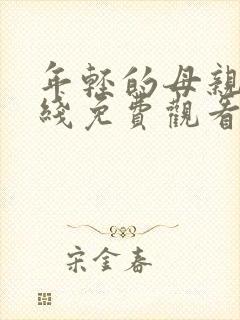 年轻的母親
綫免費觀看
宋金春